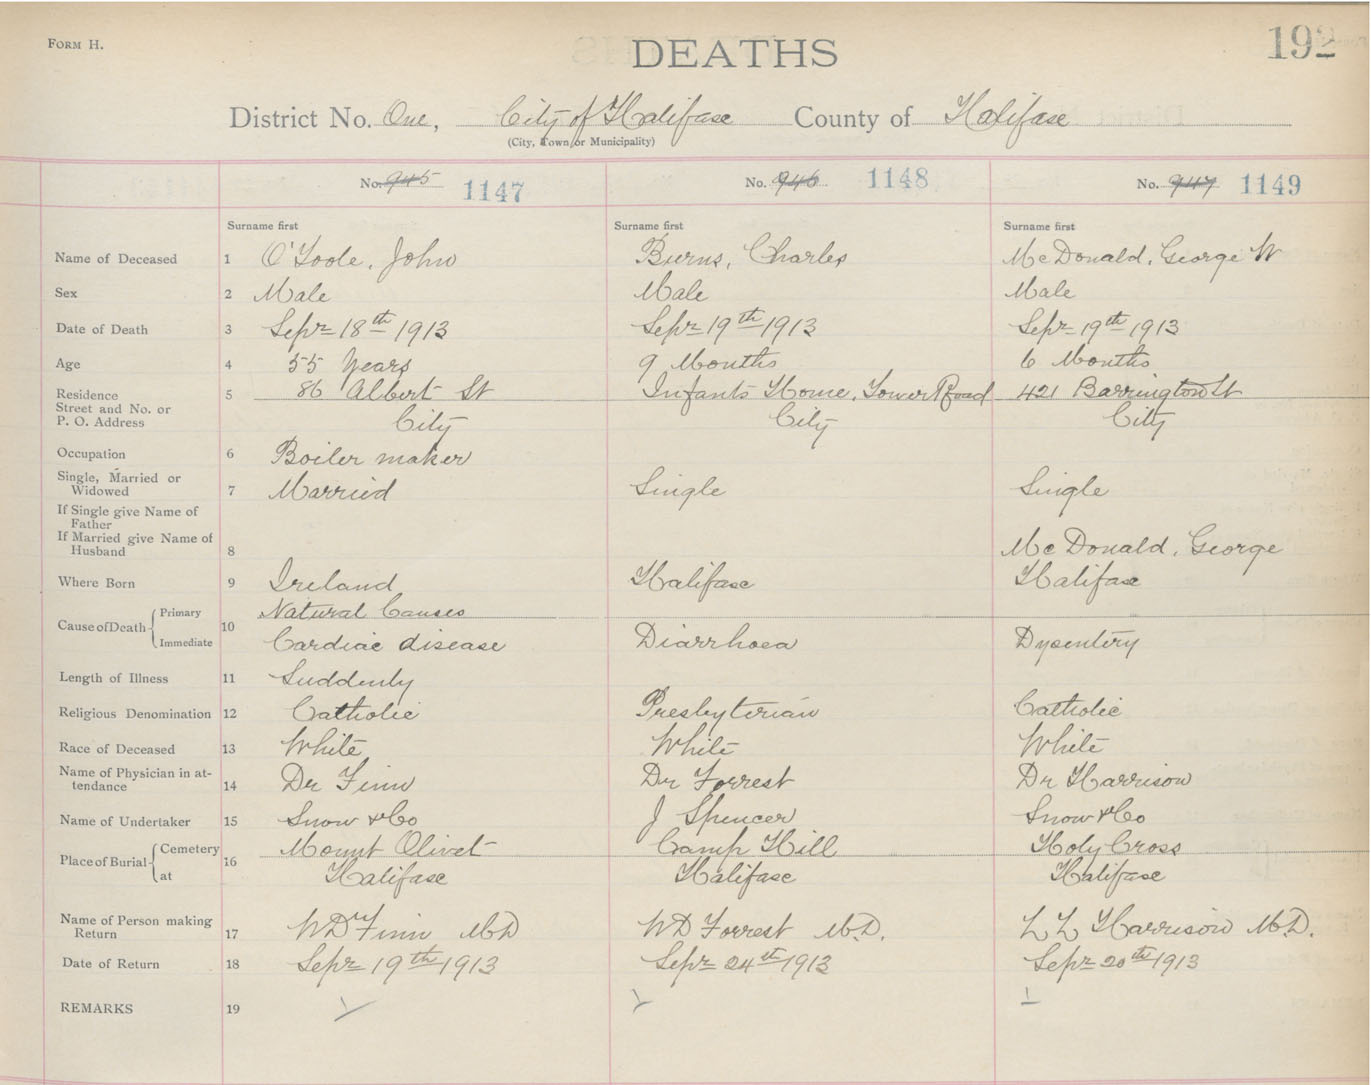 FORM H.
DEATHS
192
District No. One, City of Halifax County of Halifax
(City, Town or Municipality)
No. 945 1147 No. 946 1148 No. 947 1149
Surname first Surname first Surname first
Name of Deceased 1 O'Toole, John Burns, Charles McDonald, George W
Sex 2 Male Male Male
Date of Death 3 Sept 18th 1913 Sept 19th 1913 Sept 19th 1913
Age 4 55 Years 9 Months 6 Months
Residence 5 86 Albert St Infants Home, Tower Road 421 Barrington St
Street and No. or
P. O. Address City City City
Occupation 6 Boiler maker
Single, Married or
Widowed 7 Married Single Single
If Single give Name of
Father
If Married give Name of
Husband 8 McDonald, George
Where Born 9 Ireland Halifax Halifax
Cause of Death Primary 10 Natural Causes
Immediate Cardiac disease Diarrhoea Dysentery
Length of Illness 11 Suddenly
Religious Denomination 12 Catholic Presbyterian Catholic
Race of Deceased 13 White White White
Name of Physician in at-
tendance 14 Dr Finn Dr Forrest Dr Harrison
Name of Undertaker 15 Snow & Co J Spencer Snow & Co
Place of Burial Cemetery 16 Mount Olivet Camp Hill Holy Cross
at Halifax Halifax Halifax
Name of Person making
Return 17 WD Finn MD WD Forrest M.D. L L Harrison M.D.
Date of Return 18 Sept 19th 1913 Sept 24th 1913 Sept 20th 1913
REMARKS 19